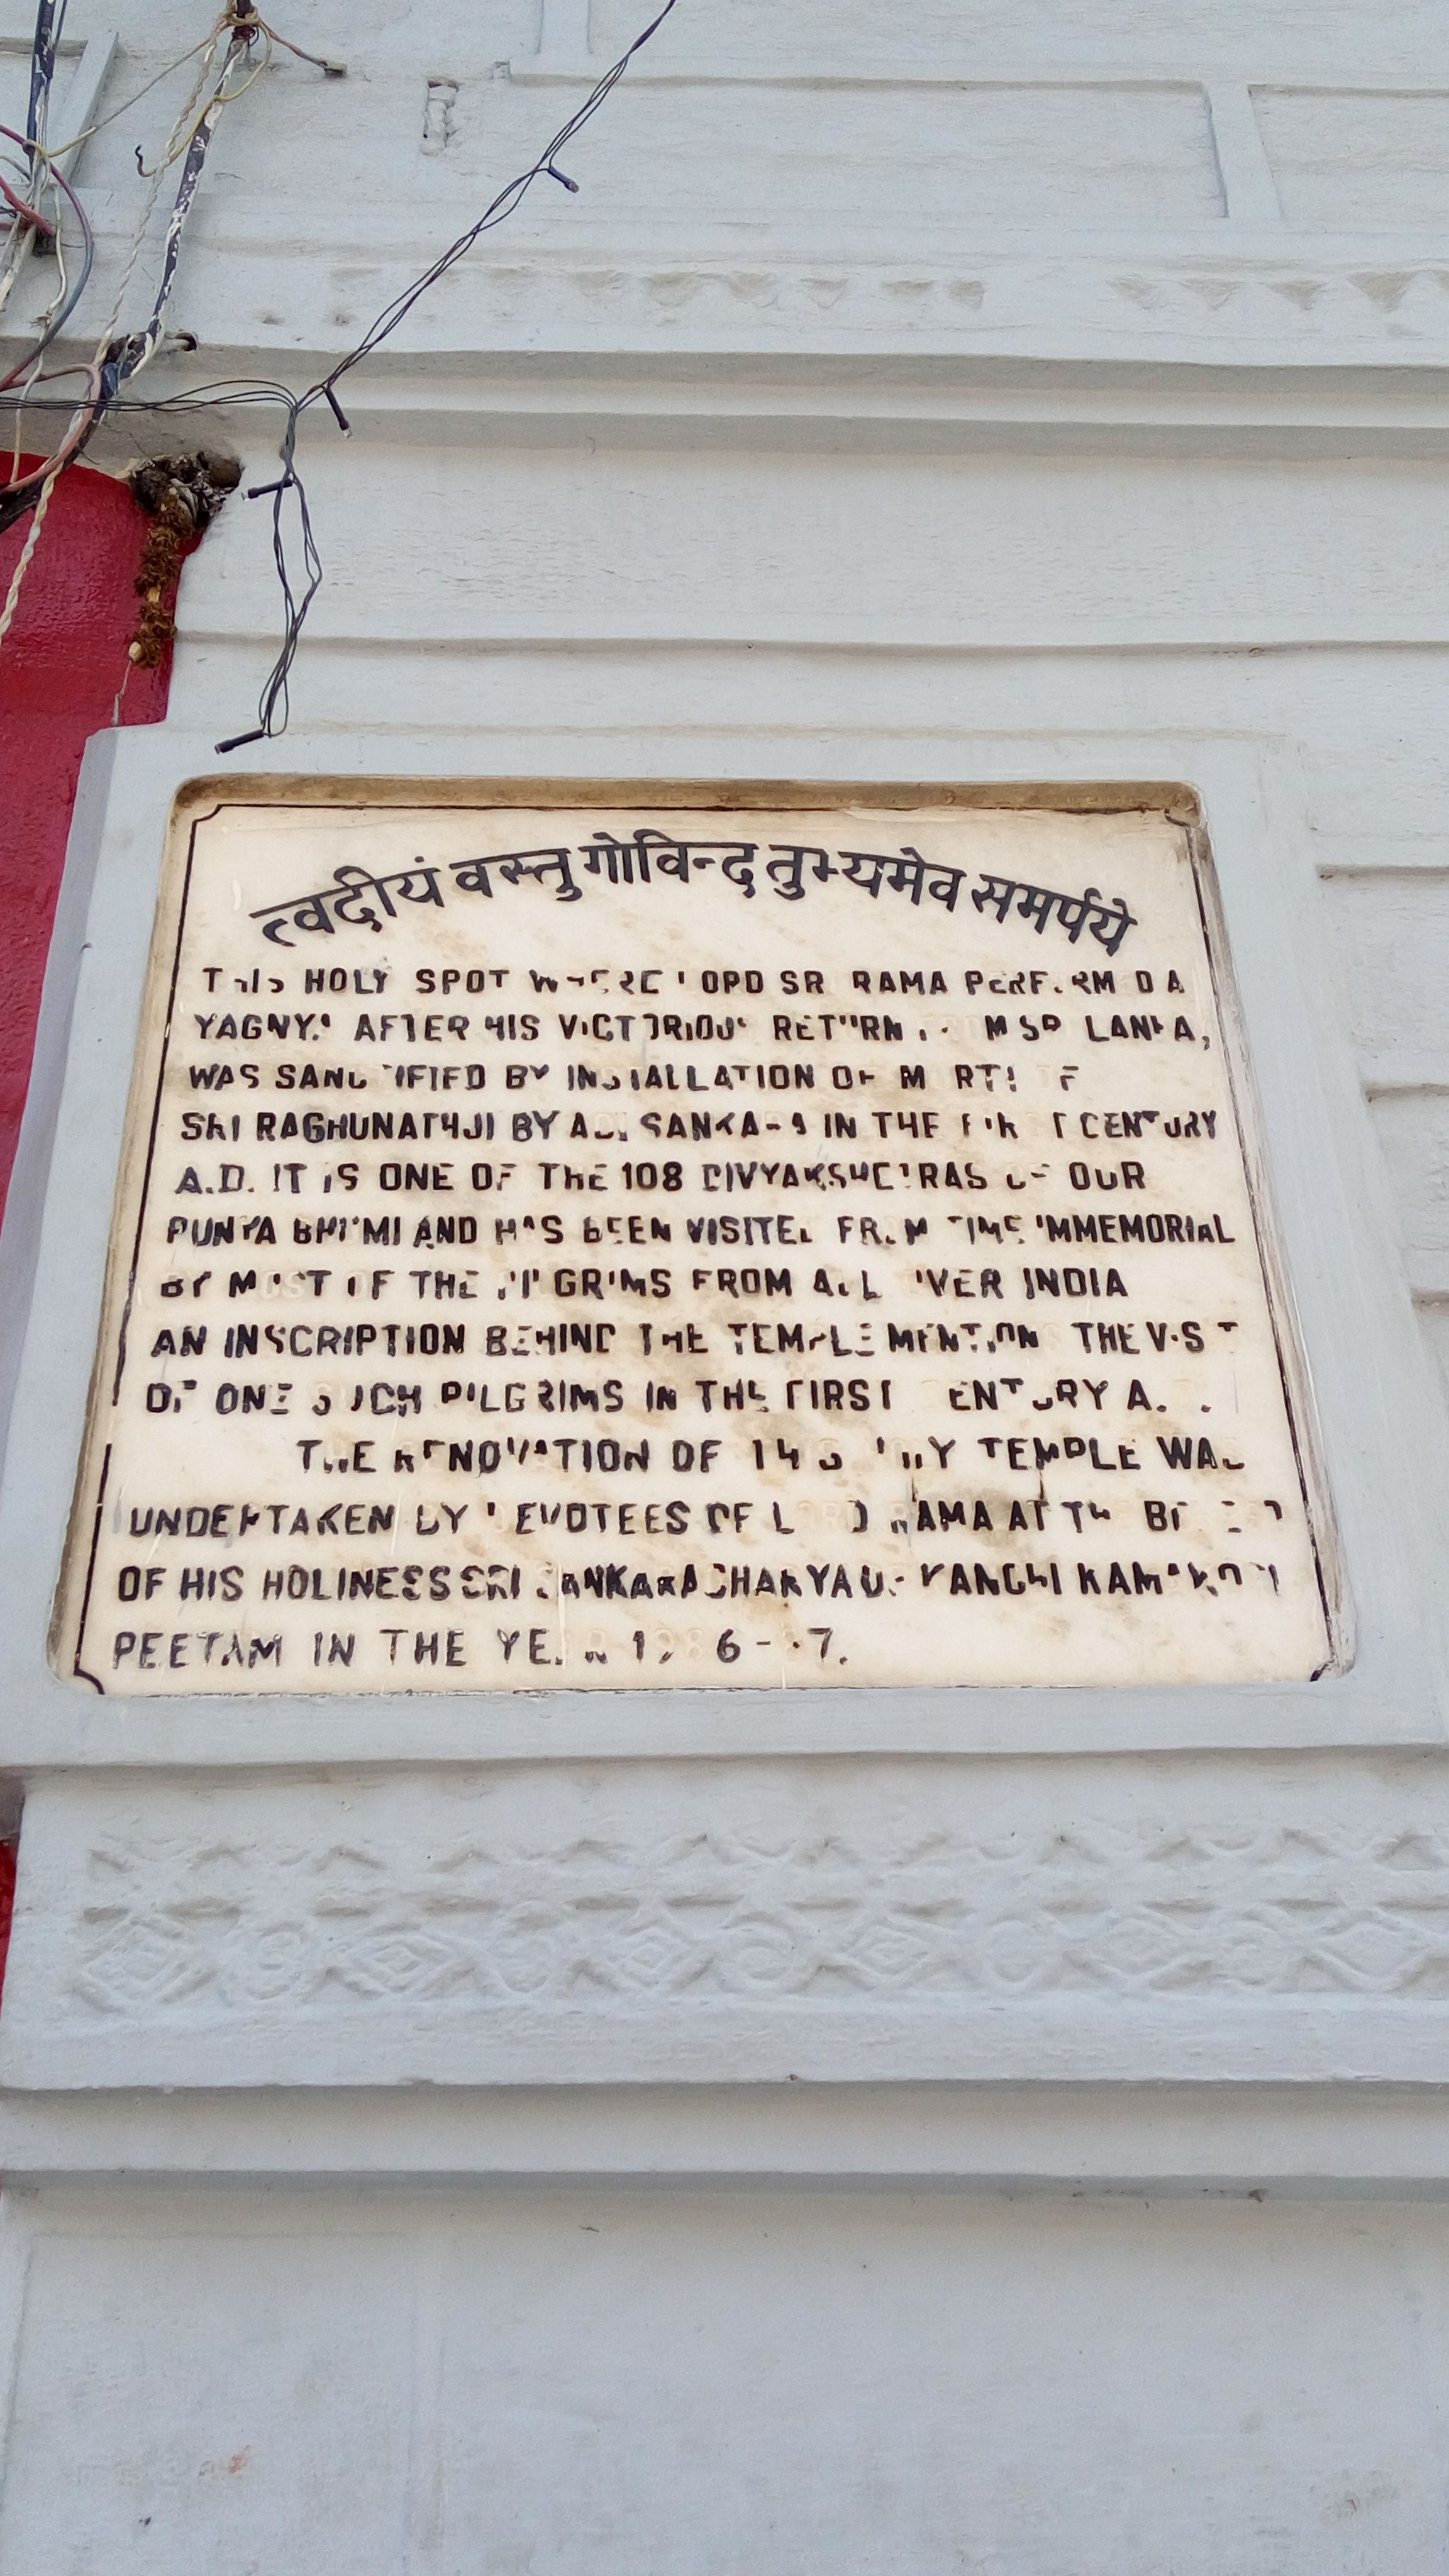 त्वदीयं वस्तु गोविन्द तुभ्यमेव समर्पये
THIS HOLY SPOT WHERE LORD SRI RAMA PERFORMED A
YAGNYA AFTER HIS VICTORIOUS RETURN FROM SRI LANKA,
WAS SANCTIFIED BY INSTALLATION OF MURTI OF
SRI RAGHUNATHJI BY ADI SANKARA IN THE FIRST CENTURY
A.D. IT IS ONE OF THE 108 DIVYAKSHETRAS OF OUR
PUNYA BHUMI AND HAS BEEN VISITED FROM TIME IMMEMORIAL
BY MOST OF THE PILGRIMS FROM ALL OVER INDIA
AN INSCRIPTION BEHIND THE TEMPLE MENTIONS THE VISIT
OF ONE SUCH PILGRIMS IN THE FIRST CENTURY A.D.
THE RENOVATION OF THIS HOLY TEMPLE WAS
UNDERTAKEN BY DEVOTEES OF LORD RAMA AT THE BEHEST
OF HIS HOLINESS SRI SANKARACHARYA OF KANCHI KAMAKOTI
PEETAM IN THE YEAR